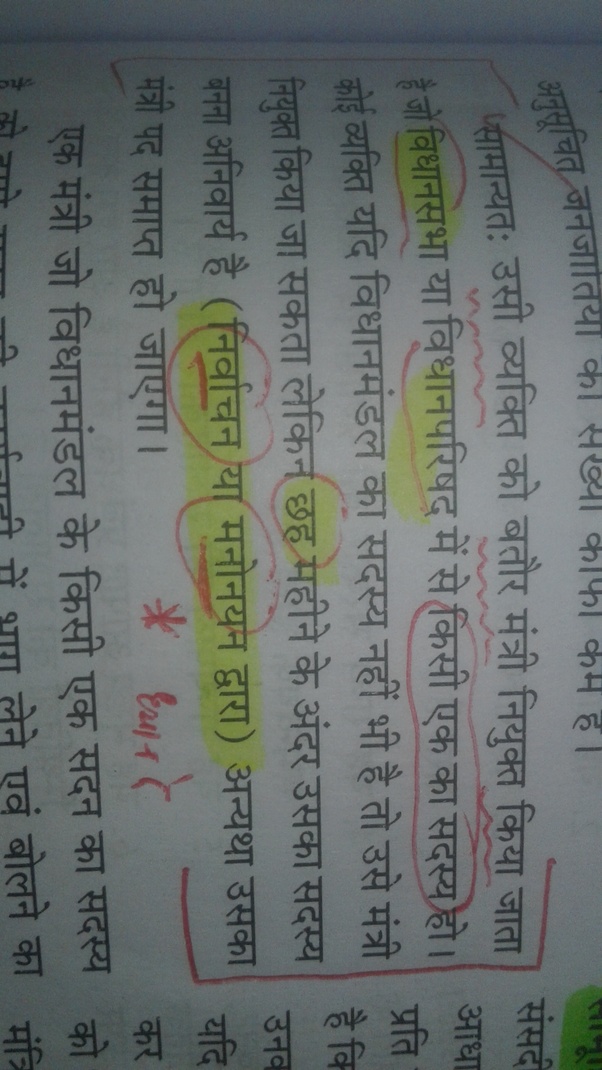 अनुसूचित जनजातियों की संख्या काफी कम है।
सामान्यतः उसी व्यक्ति को बतौर मंत्री नियुक्त किया जाता
है जो विधानसभा या विधानपरिषद् में से किसी एक का सदस्य हो।
कोई व्यक्ति यदि विधानमंडल का सदस्य नहीं भी है तो उसे मंत्री
नियुक्त किया जा सकता लेकिन छह महीने के अंदर उसका सदस्य
बनना अनिवार्य है (निर्वाचन या मनोनयन द्वारा) अन्यथा उसका
मंत्री पद समाप्त हो जाएगा।
एक मंत्री जो विधानमंडल के किसी एक सदन का सदस्य
में भाग लेने एवं बोलने का
संसदी
आधा
प्रति
है कि
उनक
यदि
कर
को
मंत्रि